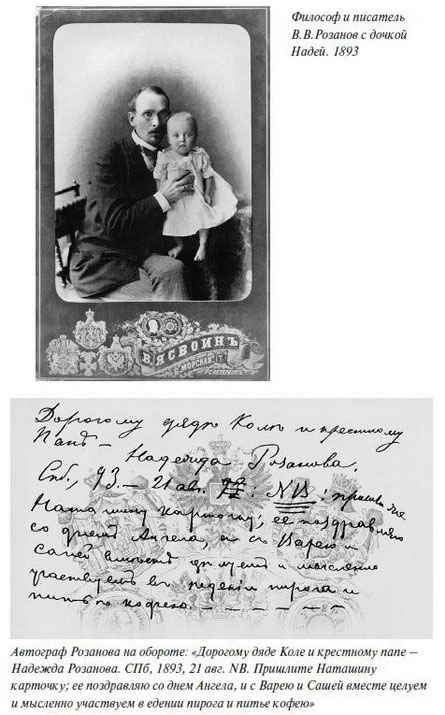 Философ и писатель
В.В.Розанов с дочкой
Надей. 1893
В. ЯСВОИНЪ
МОРСКАЯ
Дорогому дяде Коле и крестному
Папе —
Надежда Розанова.
Спб., 93.— 21 авг. NB.
Наташину карточку; ее поздравляю
со днем Ангела, а съ Варею и
Сашей вместе целуем и мысленно
участвуем въ едении пирога и
питье кофею.
Автограф Розанова на обороте: «Дорогому дяде Коле и крестному папе –
Надежда Розанова. СПб, 1893, 21 авг. NB. Пришлите Наташину
карточку; ее поздравляю со днем Ангела, и с Варею и Сашей вместе целуем
и мысленно участвуем в едении пирога и питье кофею»